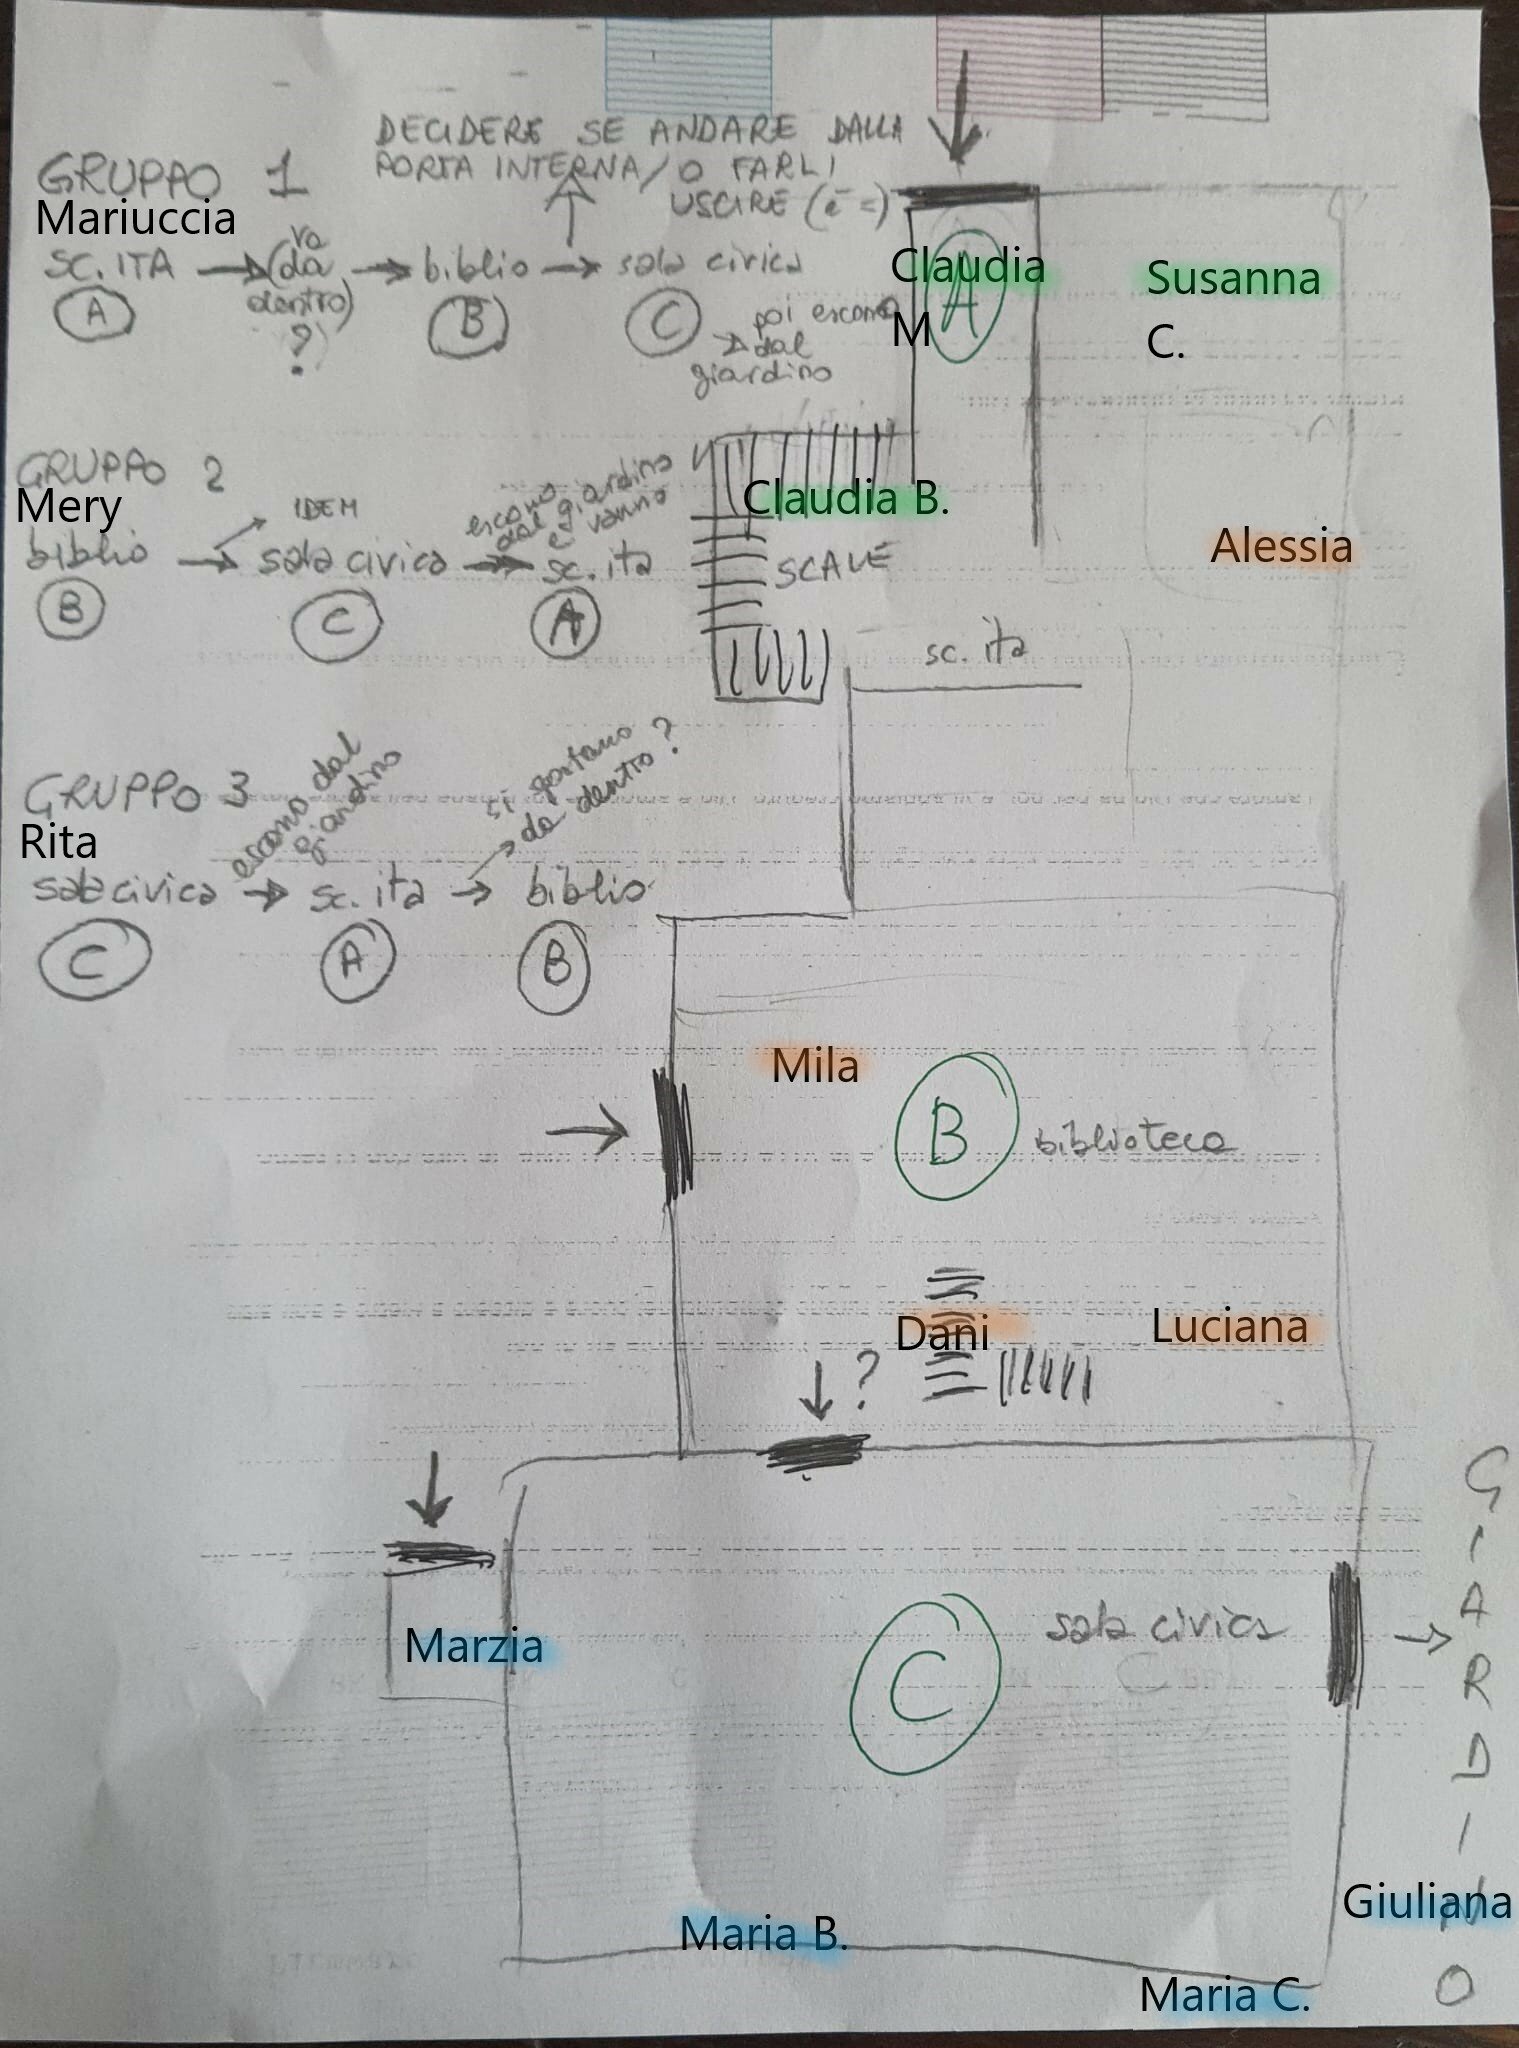 DECIDERE SE ANDARE DALLA
PORTA INTERNA/O FARLI
USCIRE (è =)
GRUPPO 1
Mariuccia
SC. ITA → (va da dentro) ? → biblio → sala civica
A B C
poi escono
dal
giardino
GRUPPO 2
Mery
biblio → sala civica → sc. ita
IDEM
escono
dal giardino
e vanno
B C A
GRUPPO 3
Rita
sala civica → sc. ita → biblio
escono dal
giardino
si spostano
da dentro?
C A B
Claudia
M
A
Susanna
C.
Claudia B.
SCALE
Alessia
sc. ita
Mila
B
biblioteca
Dani
Luciana
?
Marzia
C
sala civica
GIARDINO
Maria B.
Giuliana
Maria C.